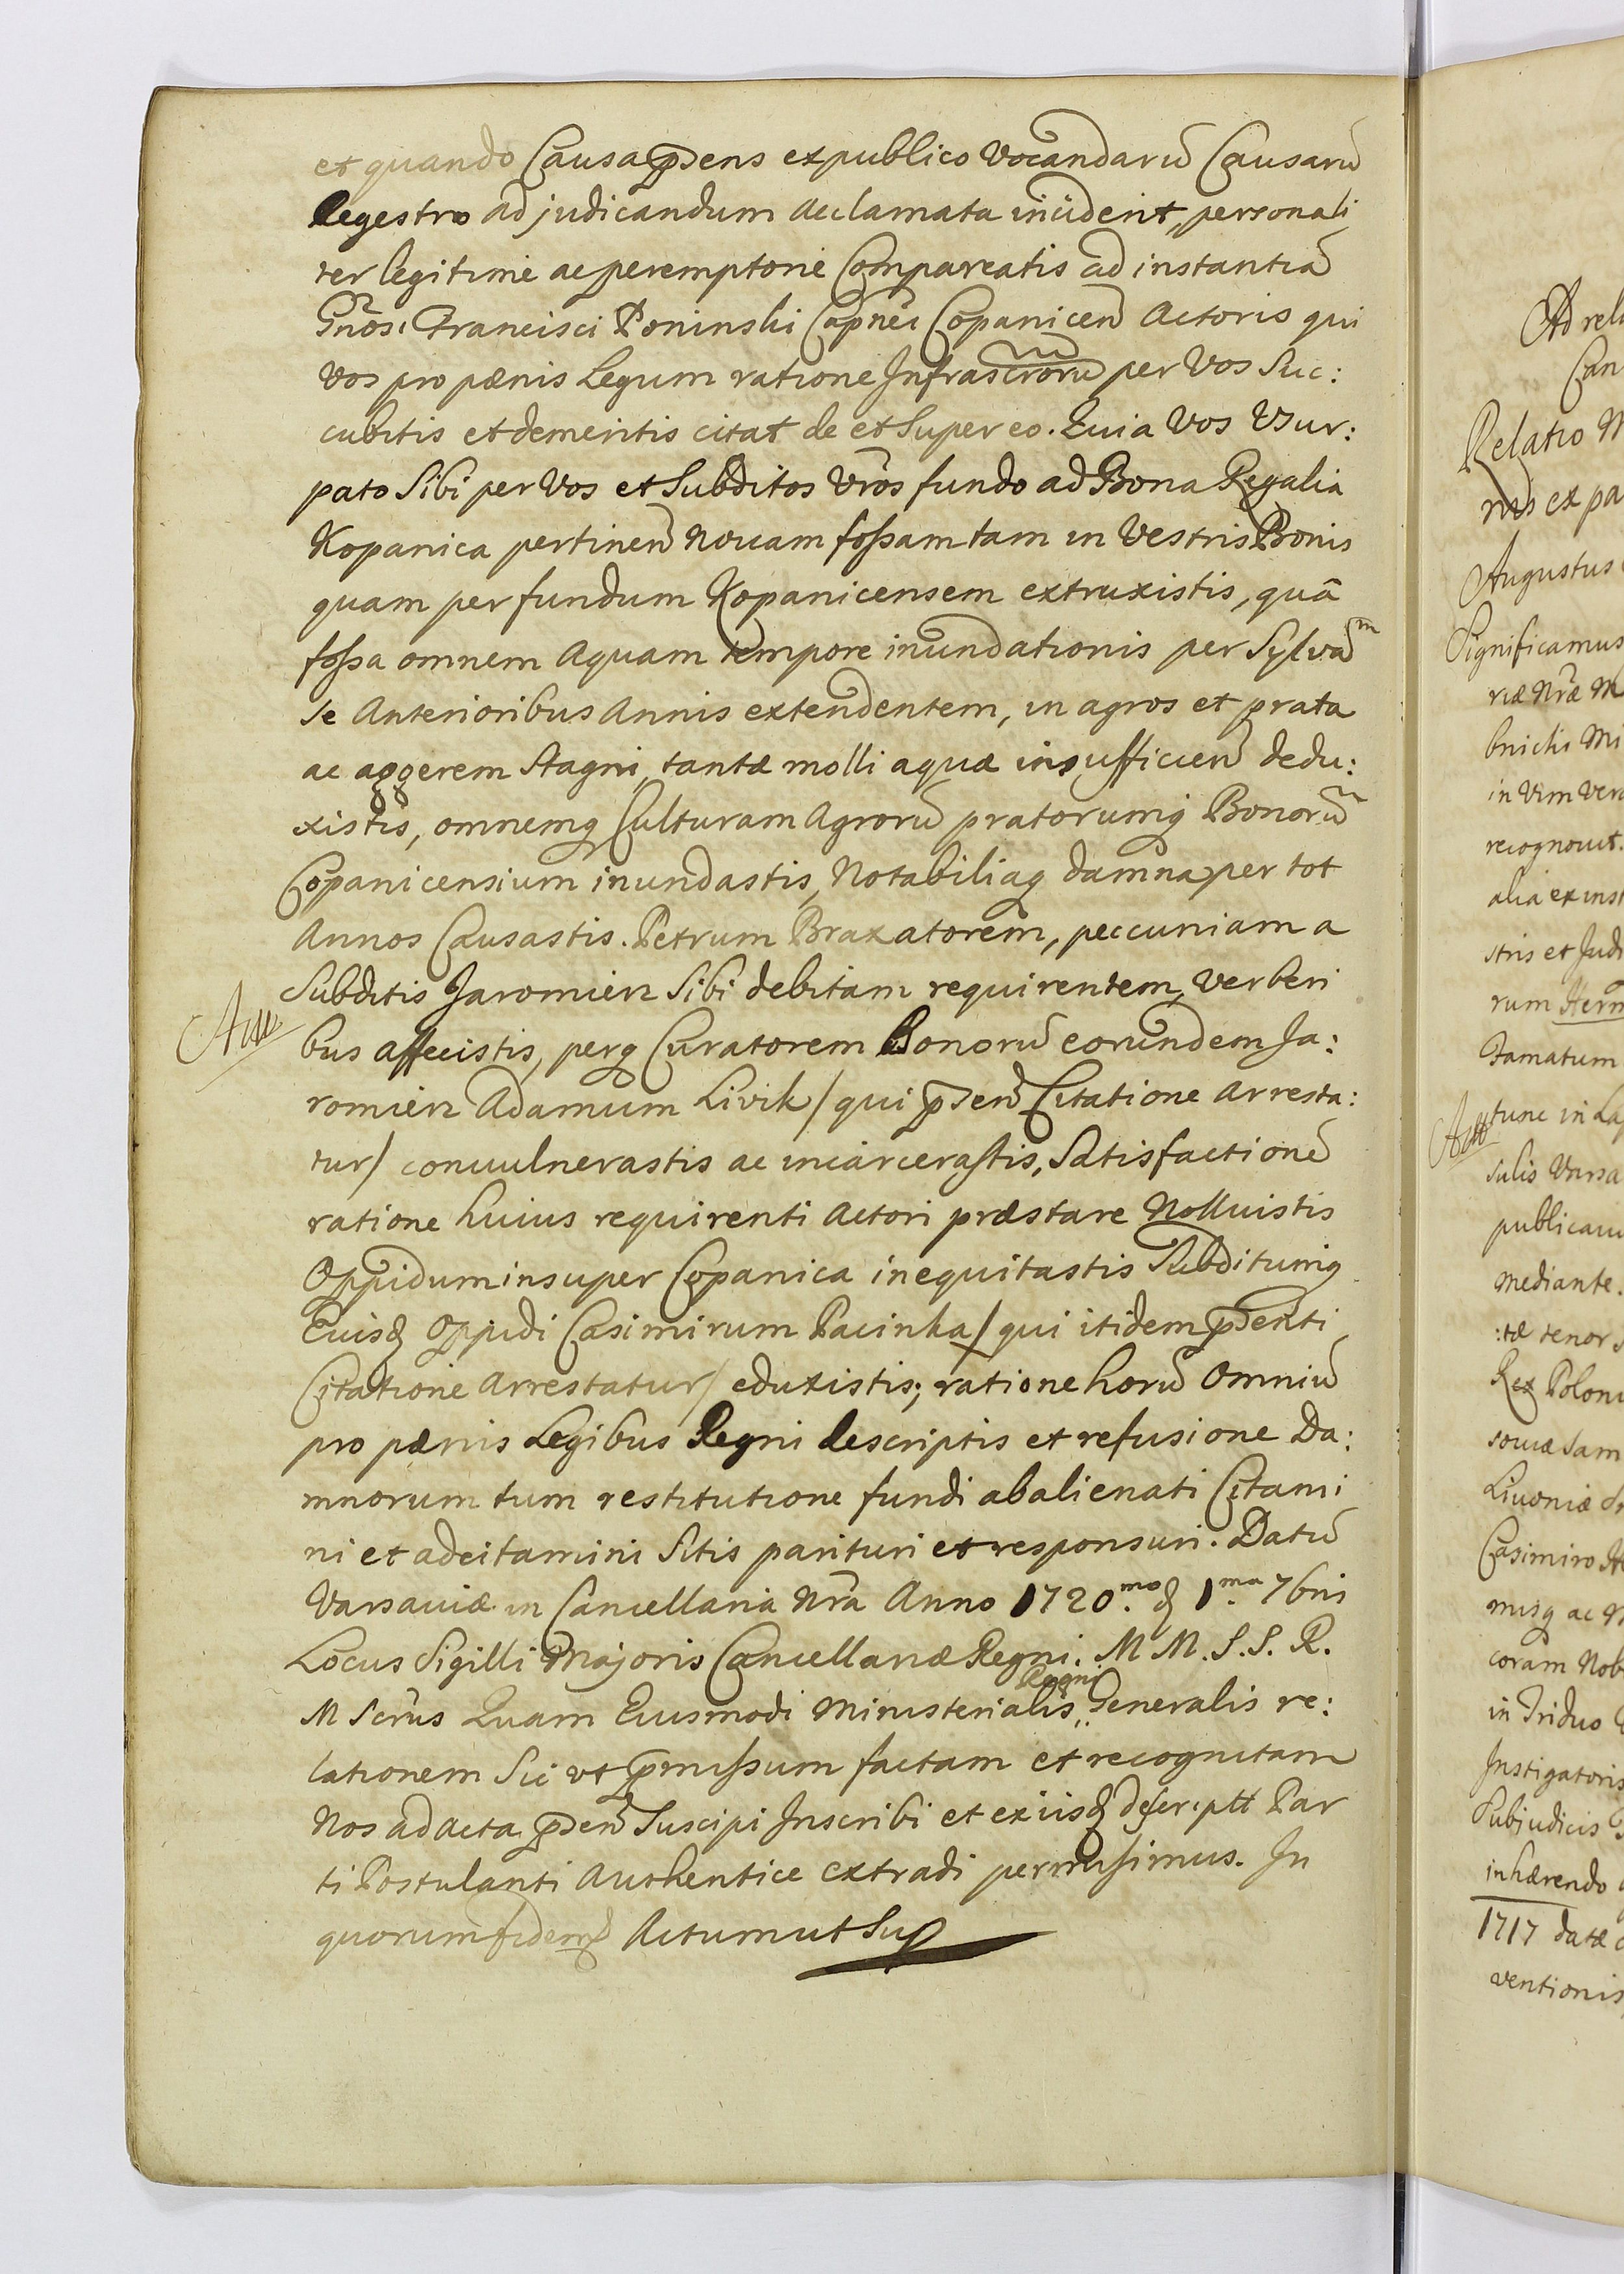 et quando Causa p̄sens ex publico vocandarū Causarū
Regestro ad judicandum acclamata inciderit, personali
ter legitime ac peremptorie Compareatis ad instantiā
Gn̄osi Francisci Poninski Capn̄ei Copanicen̄ Actoris qui
vos pro pœnis Legum ratione Infrascr̄orū per Vos Suc:
cubitis et demeritis citat de et Super eo. Quia Vos Usur:
pato Sibi per Vos et Subditos Vr̄os fundo ad Bona Regalia
Kopanica pertinen̄ Novam fossam tam in Vestris Bonis
quam per fundum Kopanicensem extruxistis, quā
fossa omnem Aquam tempore inundationis per Sylvam̄
se Anterioribus Annis extendentem, in agros et prata
ac aggerem Stagni, tantæ molli aquæ insufficien̄ dedu:
xistis, omnemq Culturam Agrorū pratorumq Bonorū
Copanicensium inundastis, Notabiliaq damna per tot
Annos Causastis. Petrum Braxatorem, peccuniam a
Subditis Jaromierz Sibi debitam requirentem, verberi
bus affecistis, perq Curatorem Bonorū eorundem Ja:
romierz Adamum Livik / qui p̄sen̄ Citatione Arresta:
tur / convulnerastis ac incarcerastis, Satisfactionē
ratione huius requirenti Actori præstare Nolluistis
Oppidum insuper Copanica inequitastis Subditumq
Eiusd Oppidi Casimirum Pacinka / qui itidem p̄senti
Citatione Arrestatur / eduxistis; ratione horū omniū
pro pænis Legibus Regni descriptis et refusione Da:
mnorum tum restitutione fundi abalienati Citami
ni et adcitamini Sitis parituri et responsuri. Datū
Varsaviæ in Cancellaria Nr̄a Anno 1720.mo d 1.ma 7bris
Locus Sigilli Majoris Cancellariæ Regni. M M. S. S. R.
M Scr̄us Quam Eiusmodi Ministerialis Regni Generalis re:
lationem Sic ut p̄missum factam et recognitam
Nos ad acta p̄sen̄ Suscipi Inscribi et ex iisd descriptt Par
ti Postulanti Authentice extradi permisimus. In
quorum fidem Actum ut Sup
Ad rel
Can
Relatio M
ris ex pa
Augustus
Significamus
riæ Nr̄æ M
in Vim ver
recognovit.
alia ex inst
stris et Judi
rum Herm
Famatum
tunc in La
publicavi
mediante.
:tæ tenor s
Rex Poloni
soviæ Sam
Livoniæ S
Casimiro
misq ac N
coram Nob
in Triduo
Instigatoris
Subjudicis
inhærendo
1717 datæ
ventionis